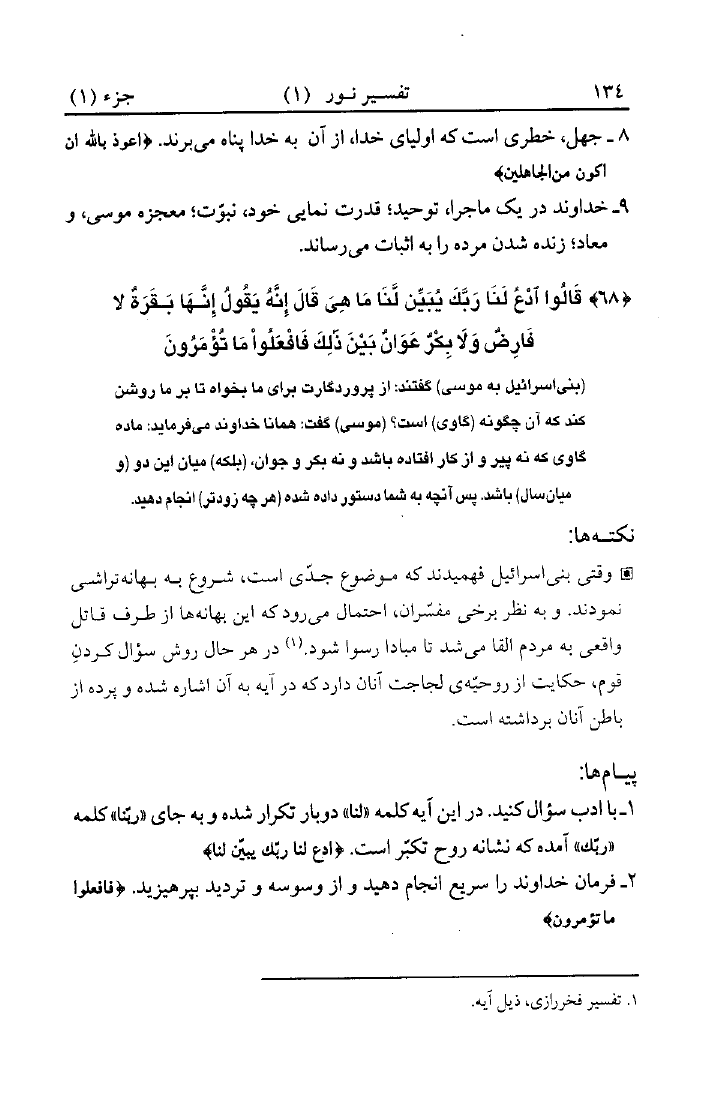 ١٣٤ تفسیر نور (١) جزء (١)
٨ـ جهل، خطری است که اولیای خدا، از آن به خدا پناه می‌برند. ﴿اعوذ بالله ان
اکون من‌الجاهلین﴾
٩ـ خداوند در یک ماجرا، توحید؛ قدرت نمایی خود، نبوّت؛ معجزه موسی، و
معاد؛ زنده شدن مرده را به اثبات می‌رساند.
﴿٦٨﴾ قَالُوا ٱدْعُ لَنَا رَبَّكَ يُبَيِّن لَّنَا مَا هِىَ قَالَ إِنَّهُ يَقُولُ إِنَّهَا بَقَرَةٌ لا
فَارِضٌ وَلَا بِكْرٌ عَوَانٌ بَيْنَ ذَٰلِكَ فَافْعَلُواْ مَا تُؤْمَرُونَ
(بنی‌اسرائیل به موسی) گفتند: از پروردگارت برای ما بخواه تا بر ما روشن
کند که آن چگونه (گاوی) است؟ (موسی) گفت: همانا خداوند می‌فرماید: ماده
گاوی که نه پیر و از کار افتاده باشد و نه بکر و جوان، (بلکه) میان این دو (و
میان‌سال) باشد. پس آنچه به شما دستور داده شده (هر چه زودتر) انجام دهید.
نکته‌ها:
▣ وقتی بنی‌اسرائیل فهمیدند که موضوع جدّی است، شروع به بهانه‌تراشی
نمودند. و به نظر برخی مفسّران، احتمال می‌رود که این بهانه‌ها از طرف قاتل
واقعی به مردم القا می‌شد تا مبادا رسوا شود.(١) در هر حال روش سؤال کردنِ
قوم، حکایت از روحیّه‌ی لجاجت آنان دارد که در آیه به آن اشاره شده و پرده از
باطن آنان برداشته است.
پیام‌ها:
١ـ با ادب سؤال کنید. در این آیه کلمه «لنا» دوبار تکرار شده و به جای «ربّنا» کلمه
«ربّك» آمده که نشانه روح تکبّر است. ﴿ادع لنا ربّك یبیّن لنا﴾
٢ـ فرمان خداوند را سریع انجام دهید و از وسوسه و تردید بپرهیزید. ﴿فافعلوا
ما تؤمرون﴾
١. تفسیر فخررازی، ذیل آیه.